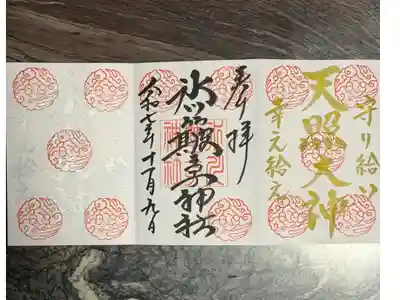 守り給い
天照大神
幸え給え
奉拝
氷川神社
令和七年十一月九日